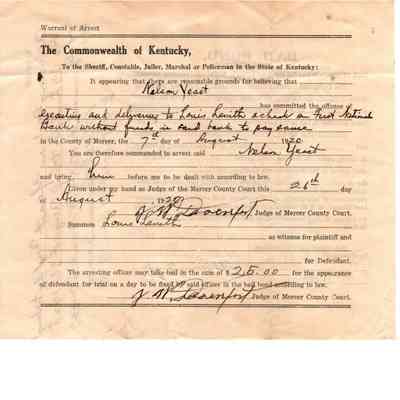 Warrant of Arrest
The Commonwealth of Kentucky,
To the Sheriff, Constable, Jailer, Marshal or Policeman in the State of Kentucky:
It appearing that there are reasonable grounds for believing that
Nelson Yeast
has committed the offense of
executing and delivering to Louis Smith a check on First National
Bank without funds in said bank to pay same
in the County of Mercer, the 7th day of August 1920
You are therefore commanded to arrest said Nelson Yeast
and bring him before me to be dealt with according to law.
Given under my hand as Judge of the Mercer County Court this 26th day
of August 1920
Judge of Mercer County Court.
Summon Louis Smith
as witness for plaintiff and
for Defendant.
The arresting officer may take bail in the sum of $25.00 for the appearance
of defendant for trial on a day to be fixed by said officer in the bail bond according to law.
J. W. Davenport Judge of Mercer County Court.